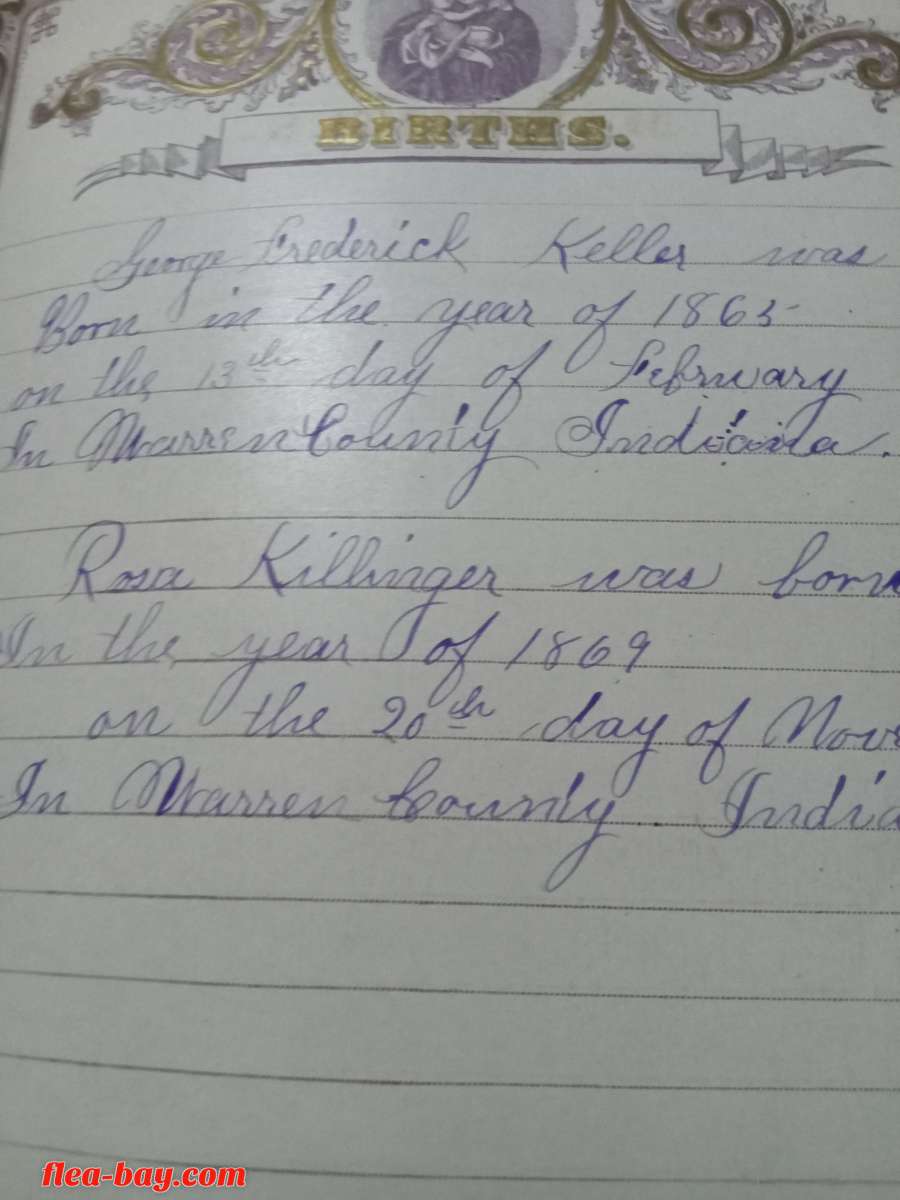 BIRTHS.
George Frederick Keller was
Born in the year of 1865
on the 13th day of February
In Warren County Indiana.
Rosa Killinger was born
In the year of 1869
on the 20th day of Nove
In Warren County India
flea-bay.com